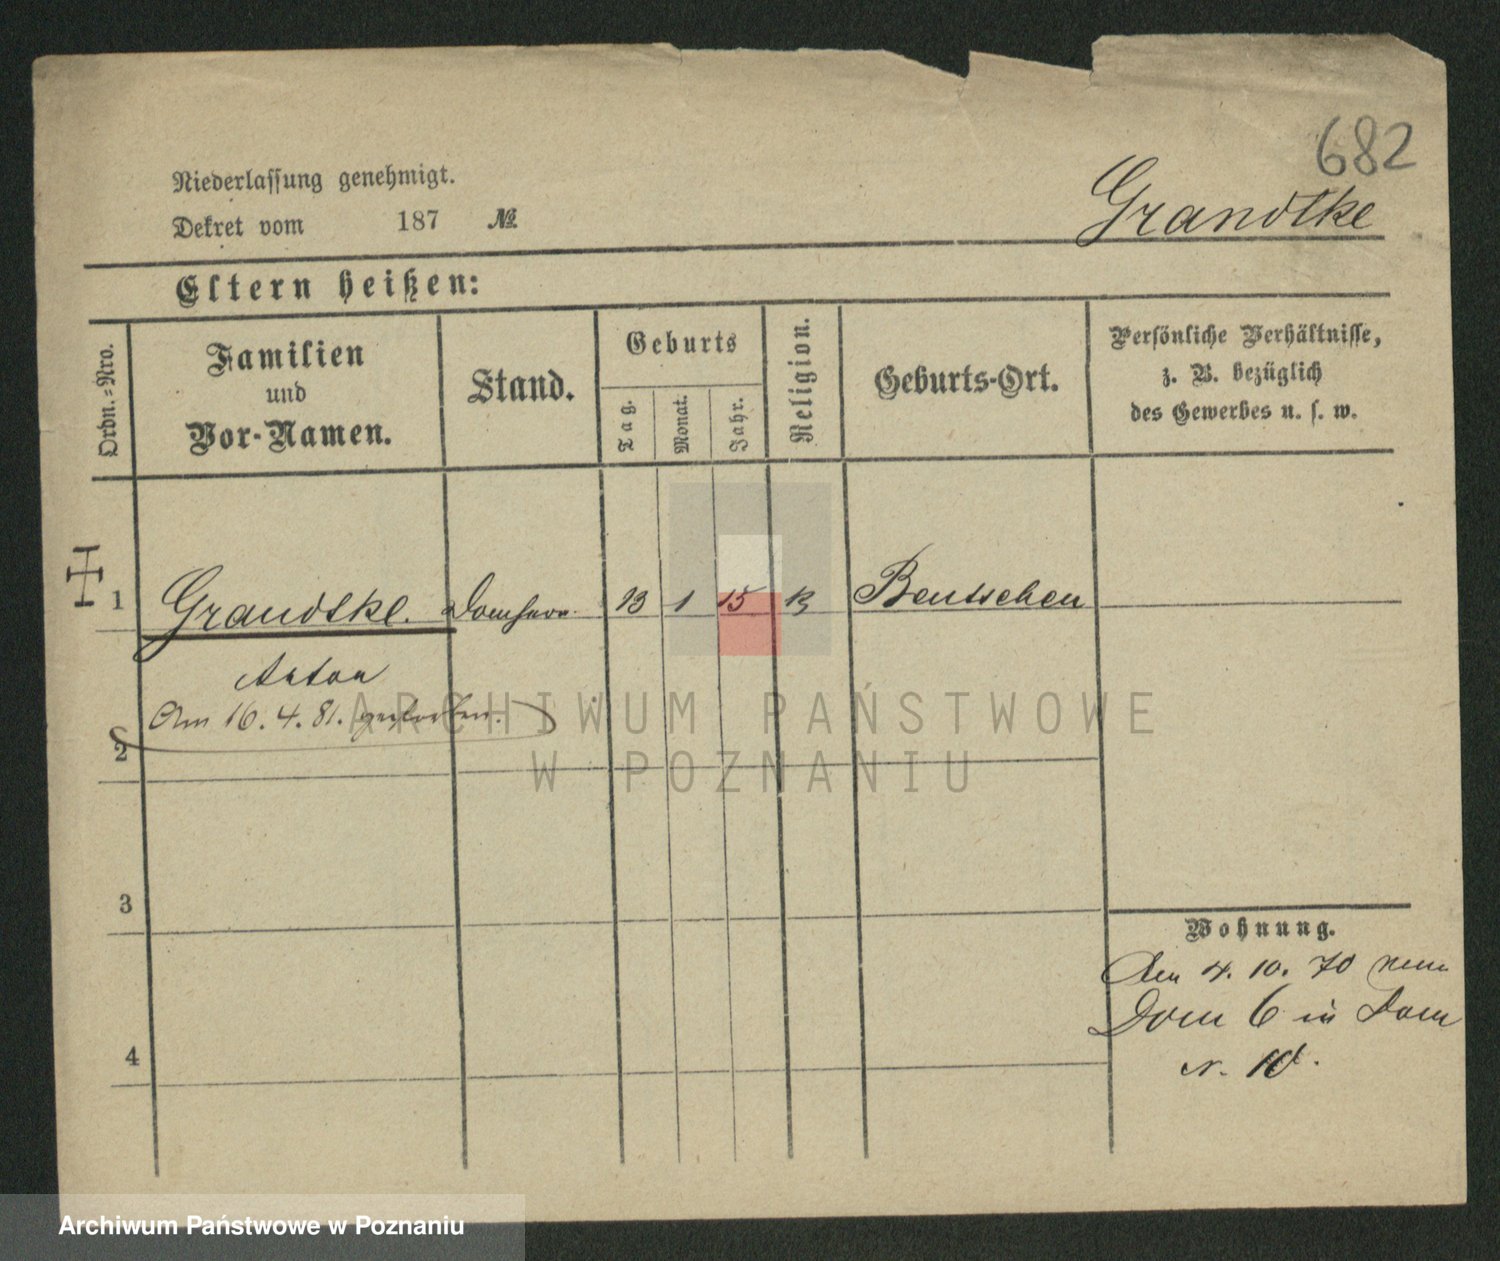 682
Niederlassung genehmigt.
Dekret vom 187 №
Grandtke
Eltern heißen:
Ordn.-Nro.
Familien und Vor-Namen.
Stand.
Geburts
Tag.
Monat.
Jahr.
Religion.
Geburts-Ort.
Persönliche Verhältnisse,
z. B. bezüglich
des Gewerbes u. s. w.
1 Grandtke. Domherr 13 1 15 k Bentschen
Anton
Am 16. 4. 81. gestorben.
2
3
4
Wohnung.
Am 4. 10. 70
Dom 6 in Dom
N. 10.
ARCHIWUM PAŃSTWOWE
W POZNANIU
Archiwum Państwowe w Poznaniu